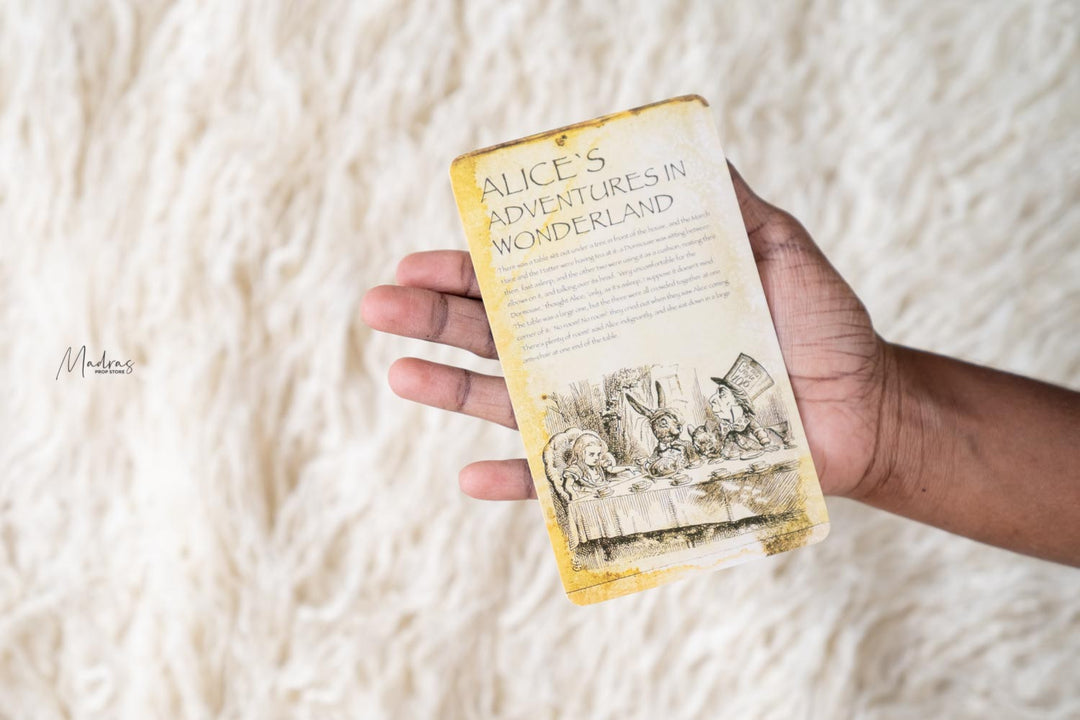 ALICE`S
ADVENTURES IN
WONDERLAND
There was a table set out under a tree in front of the house, and the March
Hare and the Hatter were having tea at it: a Dormouse was sitting between
them, fast asleep, and the other two were using it as a cushion, resting their
elbows on it, and talking over its head. 'Very uncomfortable for the
Dormouse,' thought Alice; 'only, as it's asleep, I suppose it doesn't mind.
The table was a large one, but the three were all crowded together at one
corner of it: 'No room! No room!' they cried out when they saw Alice coming.
'There's plenty of room!' said Alice indignantly, and she sat down in a large
arm-chair at one end of the table.
Madras
PROP STORE